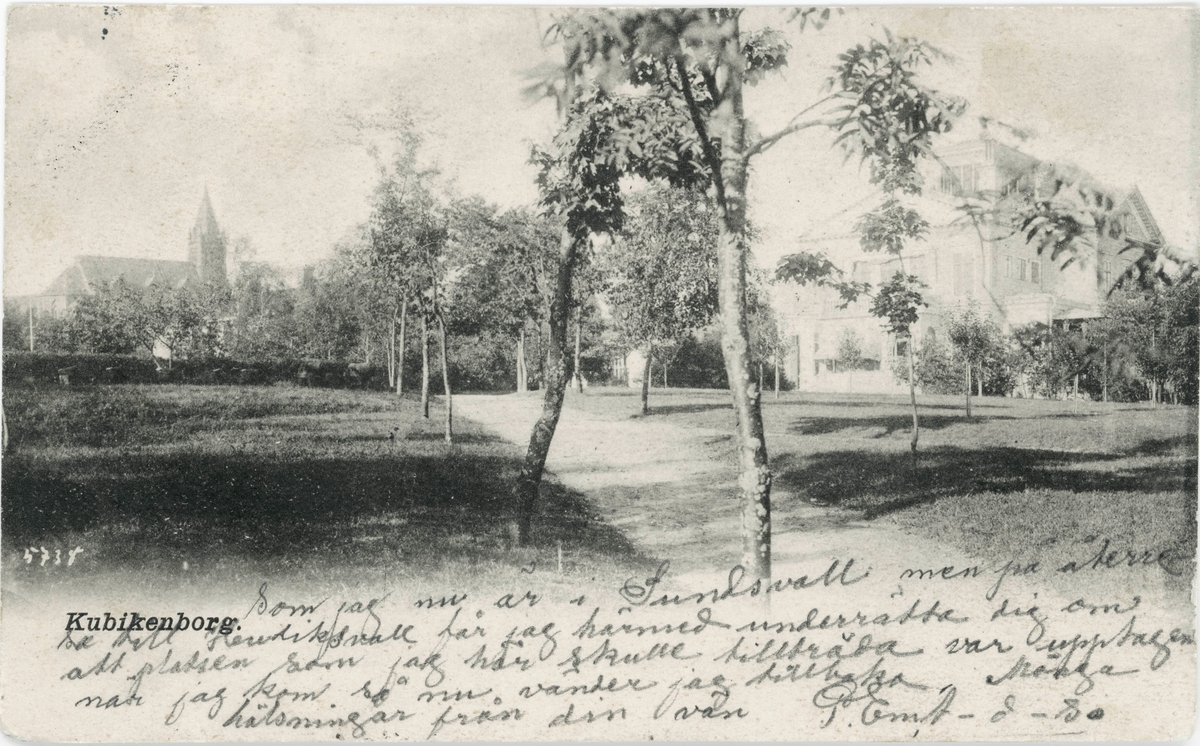 5734
Kubikenborg.
Som jag nu är i Sundsvall men på återre
sa till Hudiksvall får jag härmed underrätta dig om
att platsen som jag här skulle tillträda var upptagen
när jag kom så nu vänder jag tillbaka. Många
hälsningar från din vän